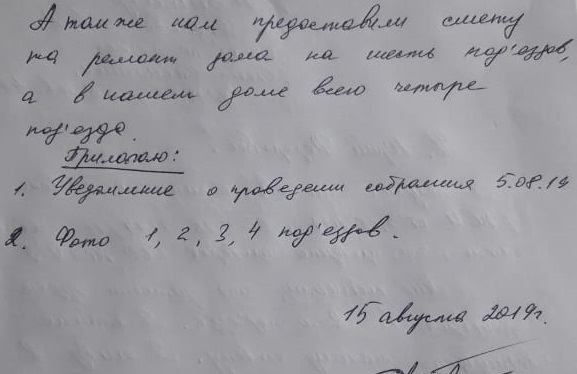 А также нам предоставили смету
на ремонт дома на шесть под'ездов,
а в нашем доме всего четыре
под'езда.
Прилагаю:
1. Уведомление о проведении собрания 5.08.19
2. Фото 1, 2, 3, 4 под'ездов.
15 августа 2019г.